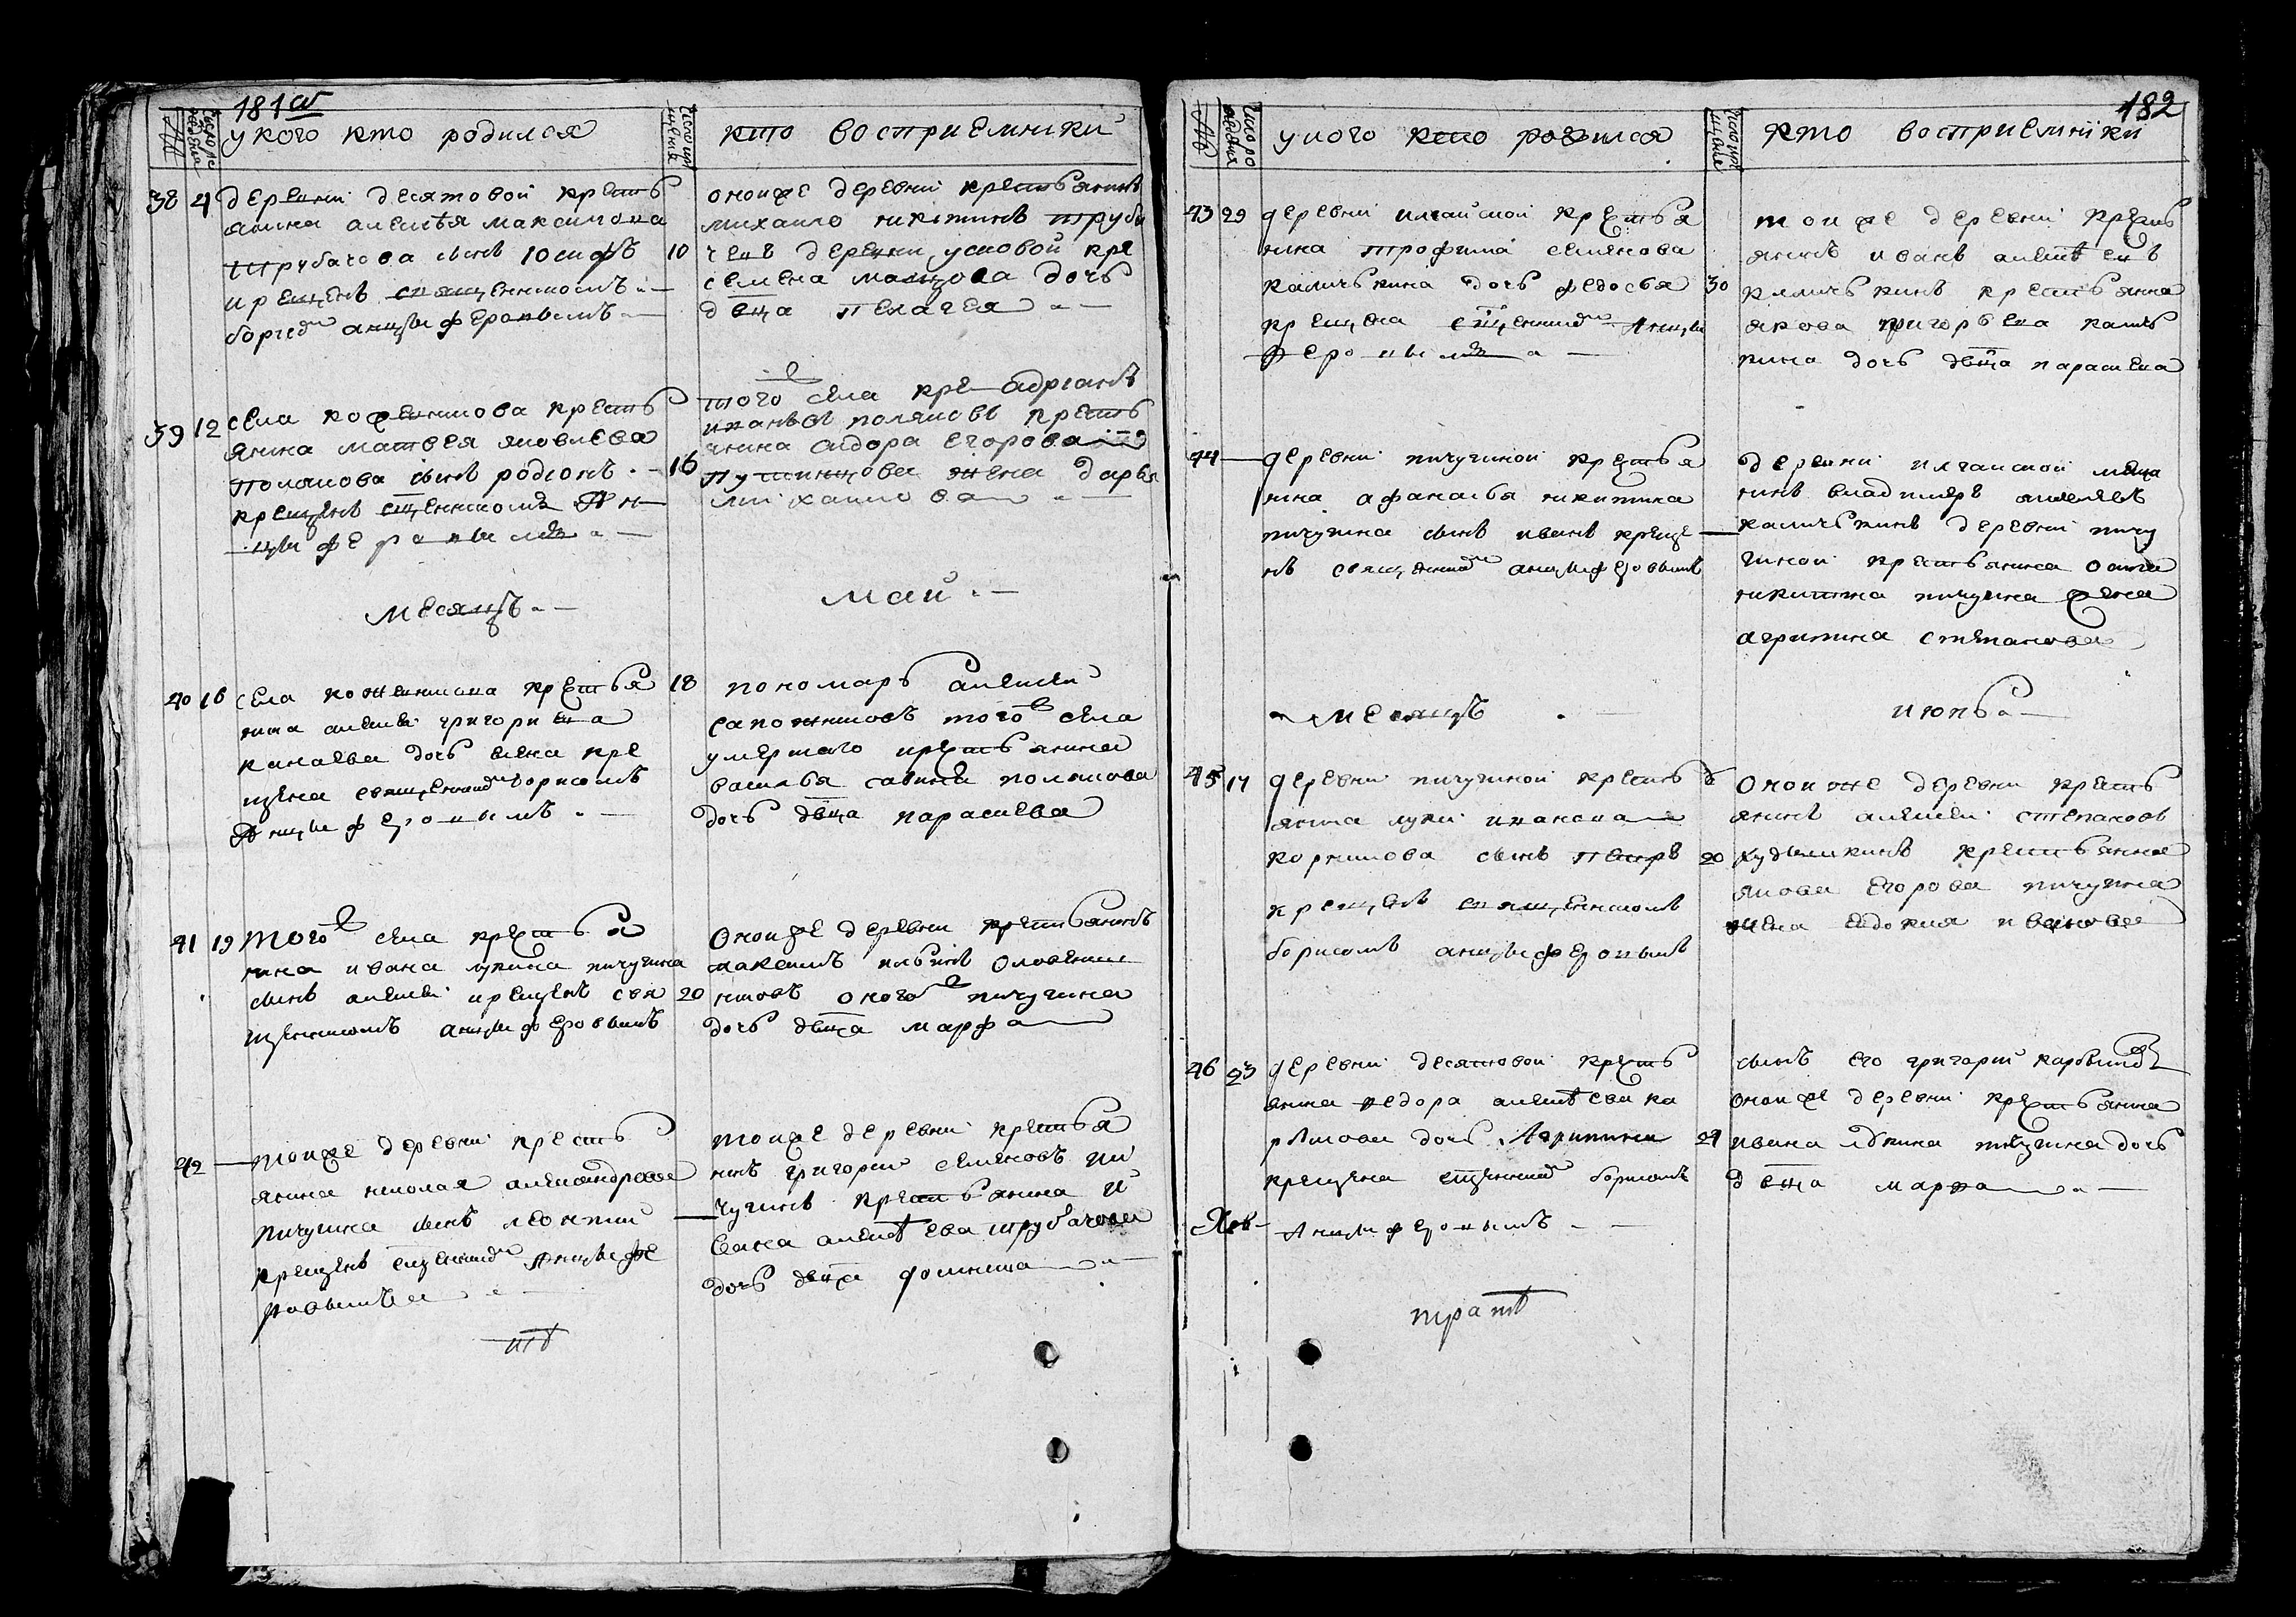 181 об
№
число рождения
у кого кто родился
число крещения
кто восприемники
38 4 деревни десятовой кресть
янина алексѣя максимова
трубачова сынъ иосифъ 10
крещенъ священникомъ
борисом анцыферовымъ
оной же деревни крестьянинъ
михаило никитинъ труба
чевъ деревни усковой кре
семена дочь
двца пелагея
39 12 села коженикова кресть
янина матвея яковлева
полякова сынъ родионъ 16
крещенъ сщенникомъ Ан
цыферовымъ
того села кре адрианъ
ивановъ поляковъ кресть
янина сидора егорова
жена дарья
михаилова
месяцъ
май
40 16 села коженикова крестья 18
нина алексея григорьева
канаева дочь елена кре
щена священникомъ борисомъ
Анцыферовымъ
пономарь алексей
сапожниковъ того села
умершаго крестьянина
василья савина полякова
дочь двца параскева
41 19 того села крестья
нина ивана лукина пичугина
сынъ алексеи крещенъ свя 20
щенникомъ анцыферовымъ
оной же деревни крестьянинъ
максимъ ильинъ оловенни
ковъ оного пичугина
дочь двца марфа
42 — той же деревни кресть
янина николая александрова
пичугина сынъ леонтии —
крещенъ сщенником Анцыфе
ровымъ
той же деревни крестья
нинъ григореи семеновъ пи
чугинъ крестьянина и
вана алексѣева трубачова
дочь двца домникиа
182
№
число рождения
у кого кто родился
число крещения
кто восприемники
43 29 деревни крестья
нина трофима семенова
каличькина дочь федосья 30
крещена сщенником Анцы
феровымъ
той же деревни кресть
янинъ иванъ алексѣевъ
каличькинъ крестьянина
якова григорьева калич
кина дочь двца параскева
44 — деревни пичугиной крестья
нина афанасья никитина
пичугина сынъ иванъ креще —
нъ священником анцыферовымъ
деревни меща
нинъ владимеръ
каличькинъ деревни пичу
гиной крестьянина осипа
никитина пичугина жена
агрипина степанова
месяцъ
июнь
45 17 деревни пичугиной кресть
янина луки иванова
корнилова сынъ петръ 20
крещенъ священникомъ
борисомъ анцыферовымъ
оной же деревни кресть
янинъ алексеи степановъ
худышкинъ крестьянина
якова егорова пичугина
жена евдокия иванова
46 23 деревни десятовой кресть
янина федора алексѣева ка
рбышова дочь Агрипина 24
крещена сщенником борисомъ
Анцыферовымъ
сынъ его григорий карбышов
оной же деревни крестьянина
ивана пичугина дочь
двца марфа